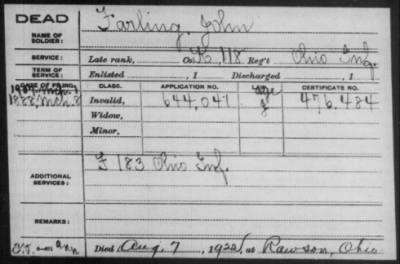 DEAD
NAME OF SOLDIER: Farling, John
SERVICE: Late rank, Co. K, 118 Reg't Ohio Inf.
TERM OF SERVICE: Enlisted , 1 Discharged , 1
DATE OF FILING. CLASS. APPLICATION NO. CERTIFICATE NO.
1888, Mch. 3 Invalid, 644,047 476,484
Widow,
Minor,
ADDITIONAL SERVICES: F 183 Ohio Inf.
REMARKS:
Died Aug. 7, 1922, at Rawson, Ohio